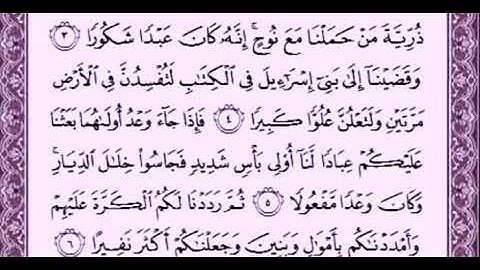 ذُرِّيَّةَ مَنْ حَمَلْنَا مَعَ نُوحٍ ۚ إِنَّهُۥ كَانَ عَبْدًا شَكُورًا ٣
وَقَضَيْنَآ إِلَىٰ بَنِىٓ إِسْرَٰٓءِيلَ فِى ٱلْكِتَٰبِ لَتُفْسِدُنَّ فِى ٱلْأَرْضِ
مَرَّتَيْنِ وَلَتَعْلُنَّ عُلُوًّا كَبِيرًا ٤ فَإِذَا جَآءَ وَعْدُ أُولَىٰهُمَا بَعَثْنَا
عَلَيْكُمْ عِبَادًا لَّنَآ أُو۟لِى بَأْسٍ شَدِيدٍ فَجَاسُوا۟ خِلَٰلَ ٱلدِّيَارِ ۚ
وَكَانَ وَعْدًا مَّفْعُولًا ٥ ثُمَّ رَدَدْنَا لَكُمُ ٱلْكَرَّةَ عَلَيْهِمْ
وَأَمْدَدْنَٰكُم بِأَمْوَٰلٍ وَبَنِينَ وَجَعَلْنَٰكُمْ أَكْثَرَ نَفِيرًا ٦